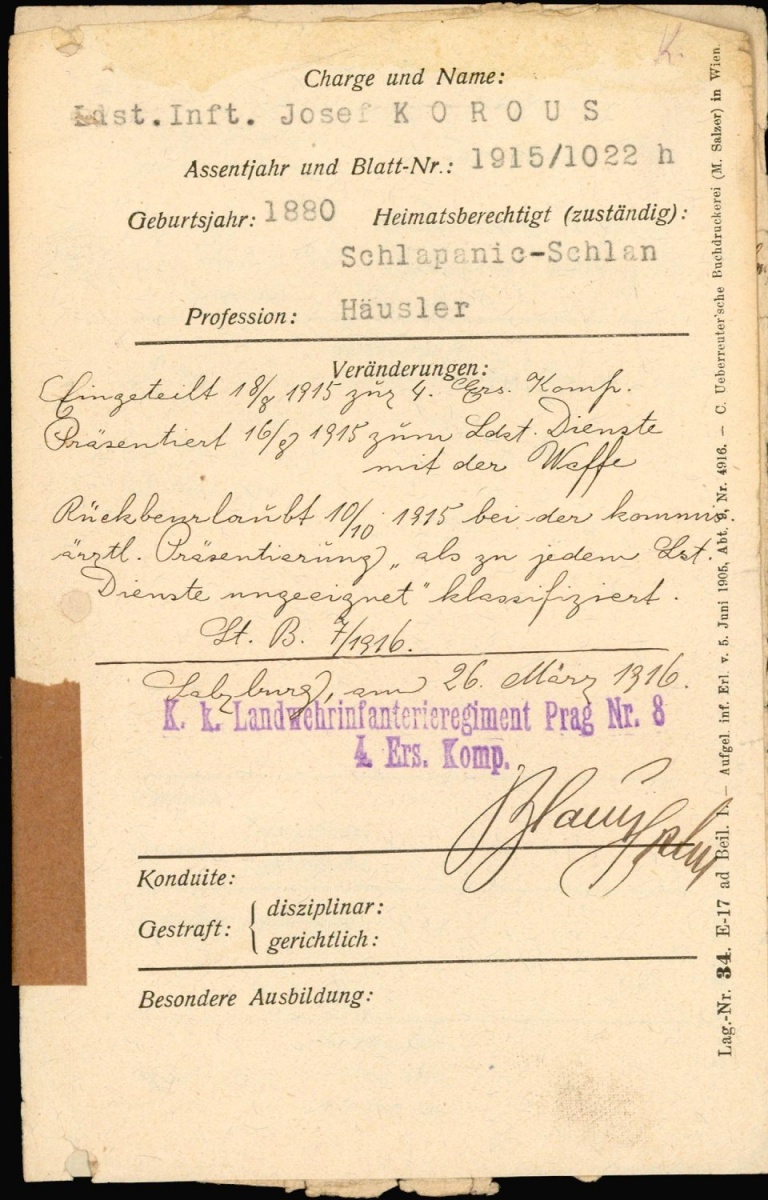 K.
Charge und Name:
Ldst.Inft. Josef K O R O U S
Assentjahr und Blatt-Nr.: 1915/1022 h
Geburtsjahr: 1880 Heimatsberechtigt (zuständig):
Schlapanic-Schlan
Profession: Häusler
Veränderungen:
Eingeteilt 18/8 1915 zur 4. Ers. Komp.
Präsentiert 16/8 1915 zum Ldst. Dienste
mit der Waffe
Rückbeurlaubt 10/10 1915 bei der kommis.
ärztl. Präsentierung „als zu jedem Lst.
Dienste ungeeignet" klassifiziert.
Lt. B. 7/1916.
Salzburg, am 26. März 1916.
K. k. Landwehrinfanterieregiment Prag Nr. 8
4. Ers. Komp.
Konduite:
Gestraft: { disziplinar:
gerichtlich:
Besondere Ausbildung:
Lag.-Nr. 34. E-17 ad Beil. 1. — Aufgel. inf. Erl. v. 5. Juni 1905, Abt. 9, Nr. 4916. — C. Ueberreuter'sche Buchdruckerei (M. Salzer) in Wien.